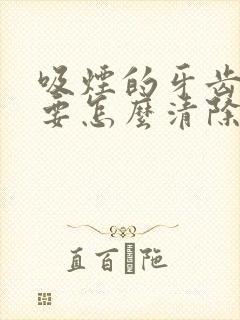 吸煙的牙齒
要怎麼清除
直百陁